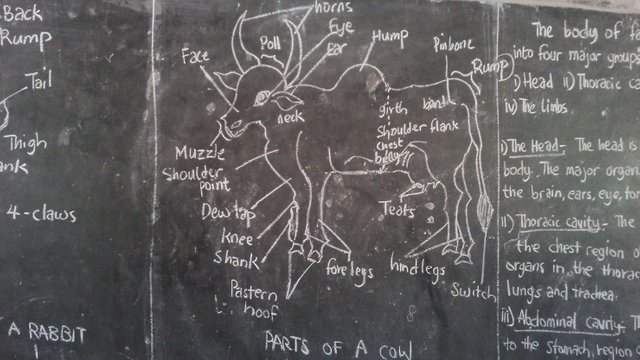 Back
Rump
Tail
Thigh
4-claws
A RABBIT
horns
Eye
ear
Poll
Hump
Pinbone
Rump
Face
neck
girth
band
Shoulder
flank
chest
Muzzle
Shoulder
point
Dewlap
Knee
Shank
Teats
fore legs
hind legs
Pastern
hoof
Switch
PARTS OF A COW
The body of
into four major
i) Head ii) Thoracic
iv) The limbs
i) The Head- The head is
body. The major organ
the brain, ears, eye,
ii) Thoracic cavity- The
the chest region
organs in the
lungs and trachea.
iii) Abdominal cavity-
to the stomach, region